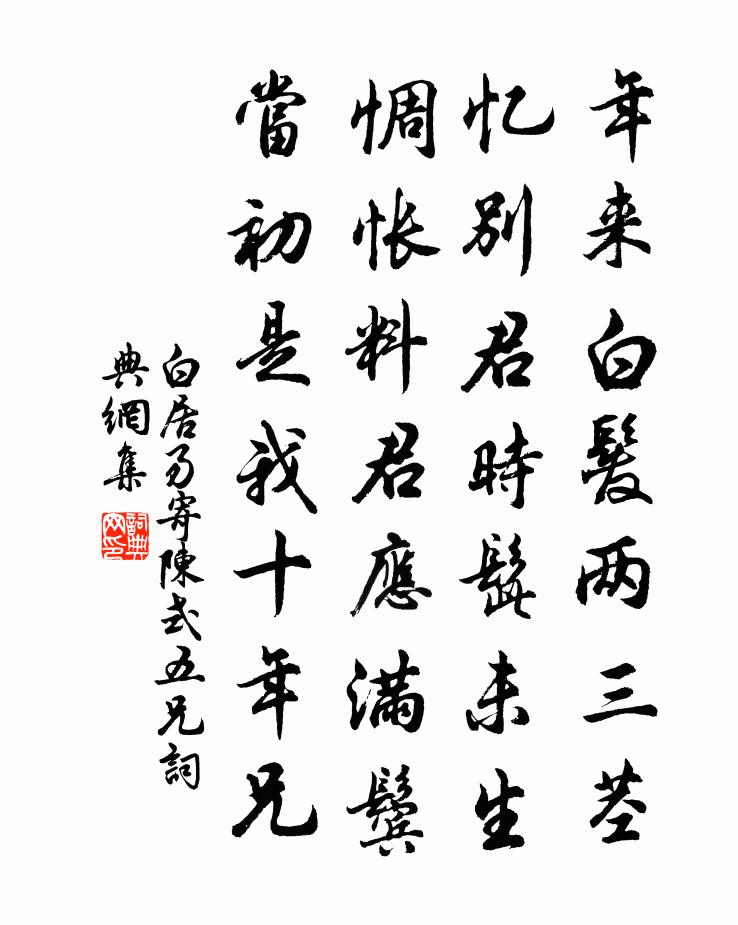 年来白髮两三茎
忆别君時髭未生
惆怅料君應满鬢
當初是我十年兄
白居易寄陳式五兄詞
典網集
詞典
网印